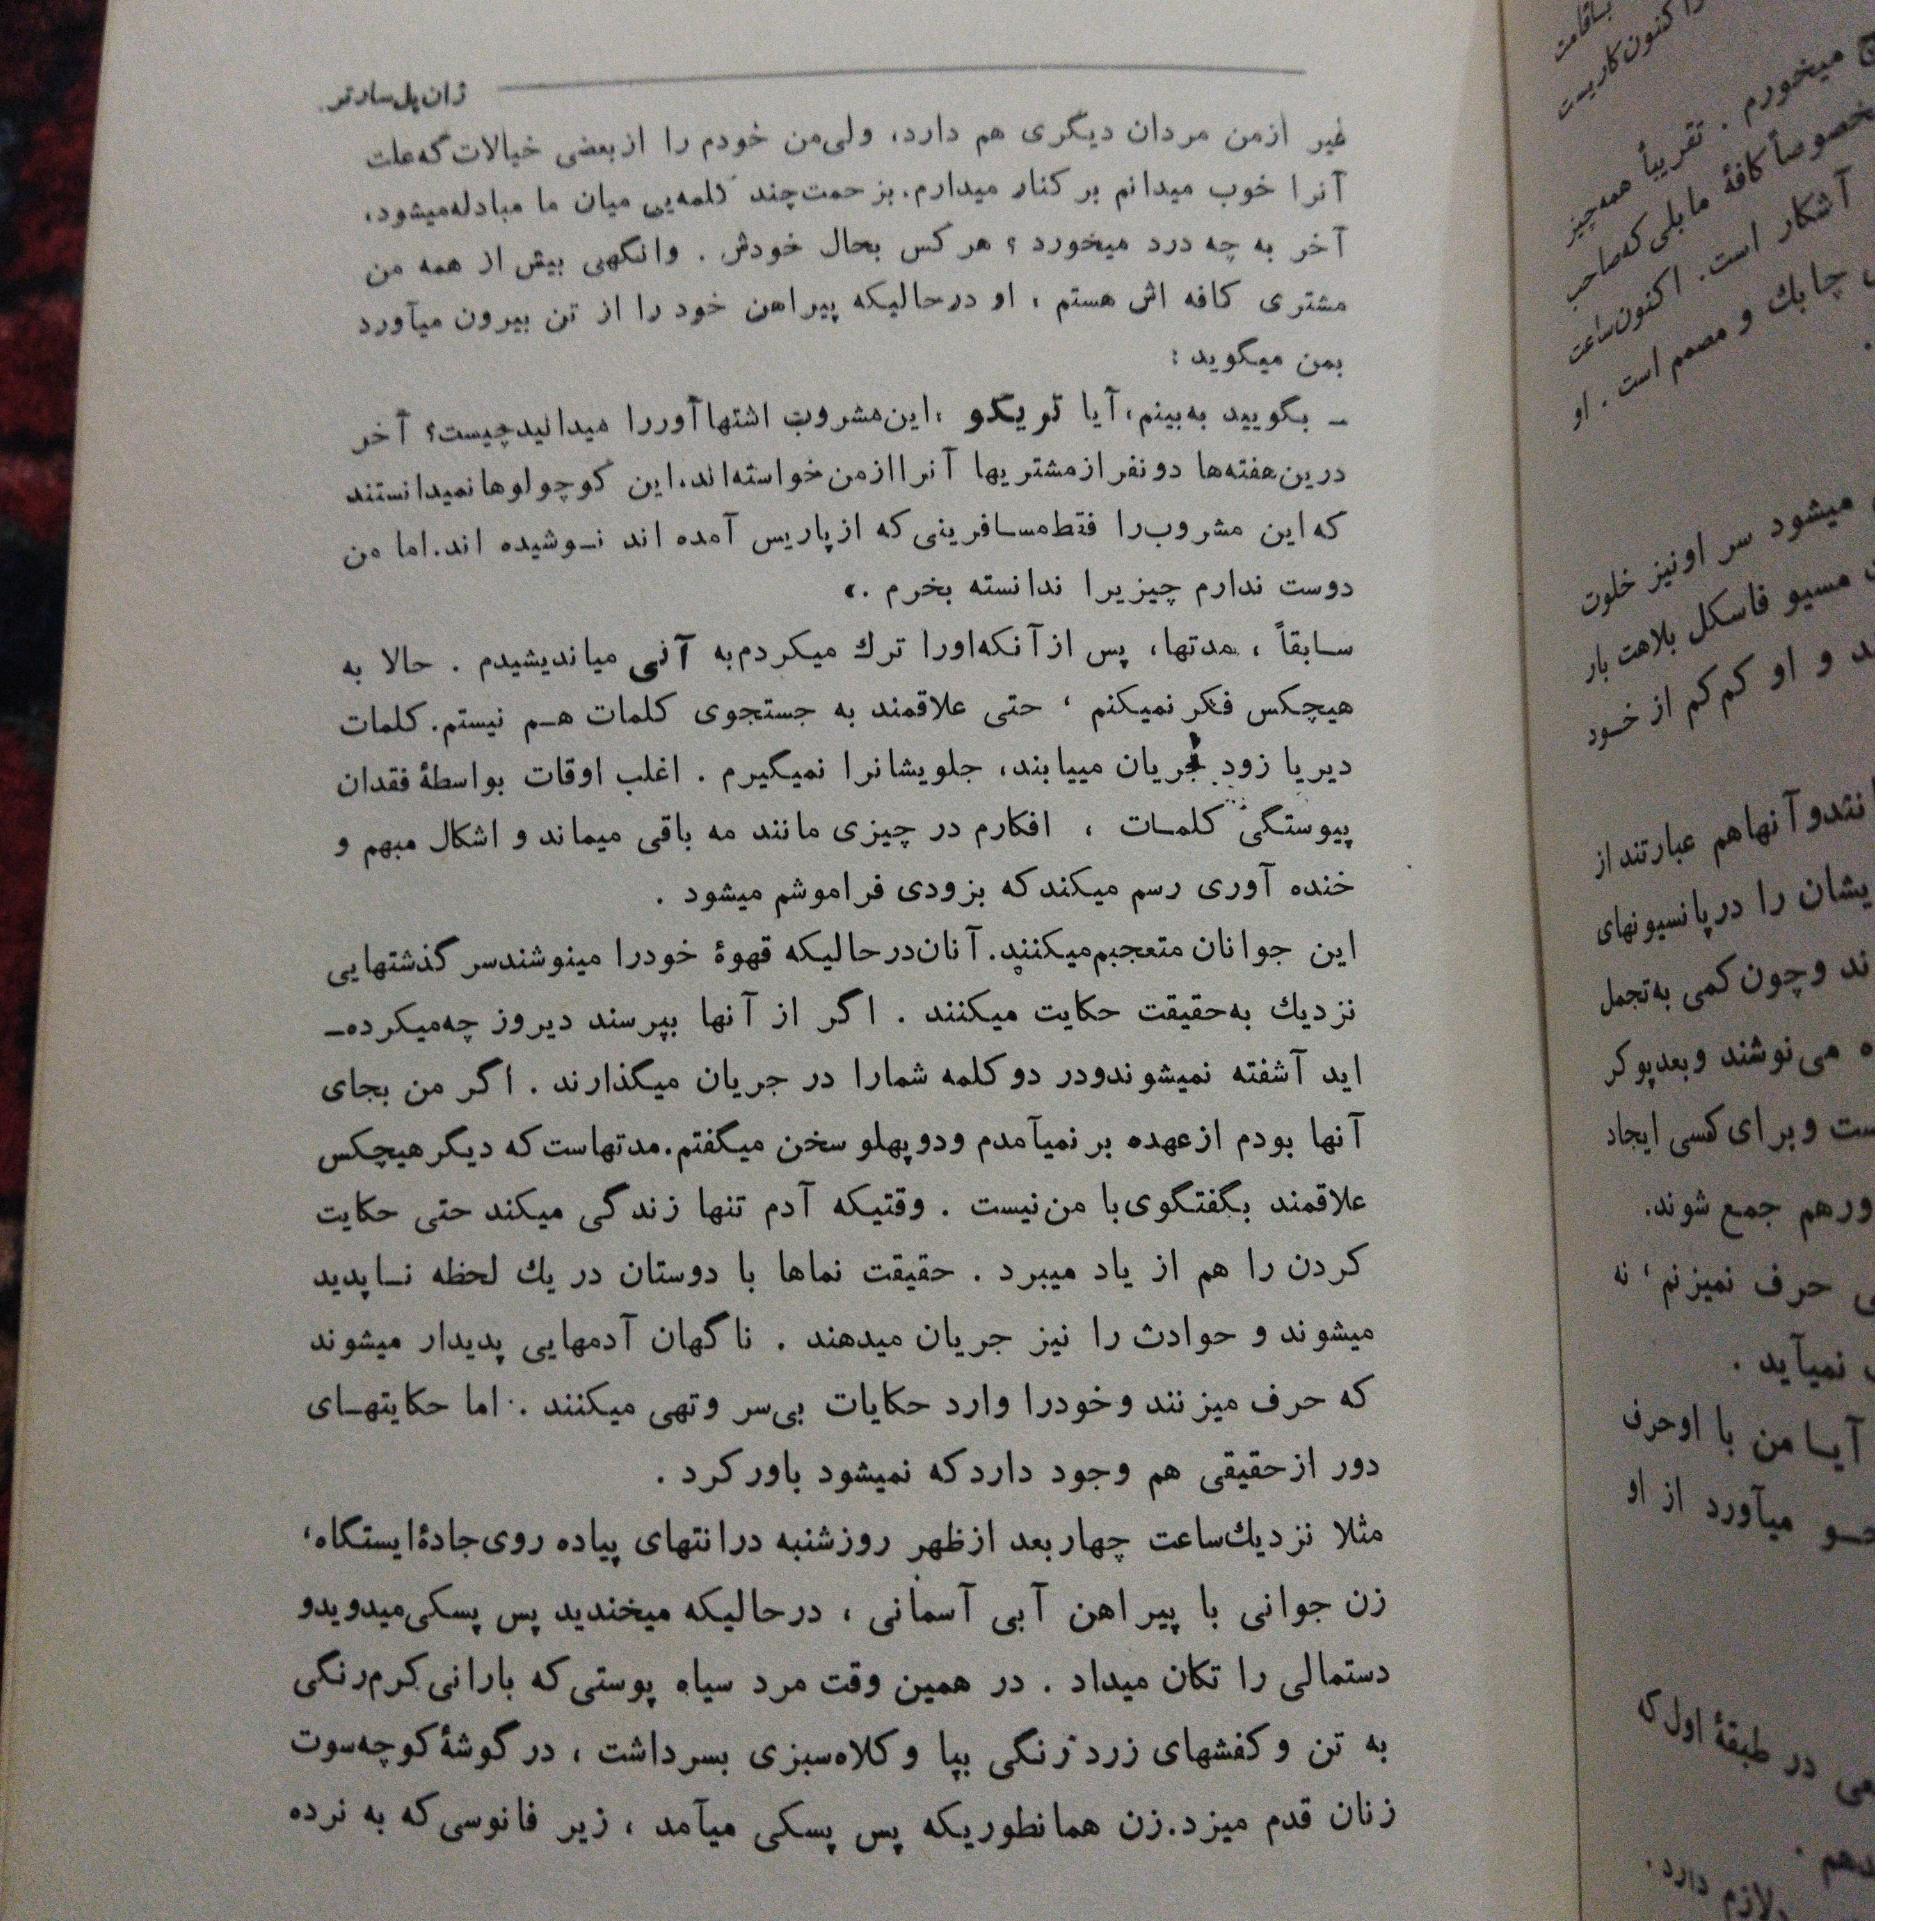 ژان پل سارتر
غیر ازمن مردان دیگری هم دارد، ولی‌من خودم را ازبعضی خیالات که‌علت
آنرا خوب میدانم بر کنار میدارم. بزحمت‌چند کلمه‌یی میان ما مبادله‌میشود،
آخر به چه درد میخورد ؟ هر کس بحال خودش . وانگهی بیش از همه من
مشتری کافه اش هستم ، او درحالیکه پیراهن خود را از تن بیرون میآورد
بمن میگوید :
ـ بگویید به‌بینم، آیا تریکو ،این‌مشروب اشتهاآوررا میدانیدچیست؟ آخر
درین‌هفته‌ها دونفرازمشتریها آنراازمن‌خواسته‌اند.این کوچولوهانمیدانستند
که این مشروب‌را فقط‌مسافرینی‌که ازپاریس آمده اند نـوشیده اند.اما من
دوست ندارم چیزیرا ندانسته بخرم .»
سـابقاً ، مدتها، پس ازآنکه‌اورا ترك میکردم‌به آنی میاندیشیدم . حالا به
هیچکس فکر نمیکنم ، حتی علاقمند به جستجوی کلمات هـم نیستم. کلمات
دیریا زود جریان مییابند، جلویشانرا نمیگیرم . اغلب اوقات بواسطهٔ فقدان
پیوستگی کلمـات ، افکارم در چیزی مانند مه باقی میماند و اشکال مبهم و
خنده آوری رسم میکندکه بزودی فراموشم میشود .
این جوانان متعجبم‌میکنند. آنان‌درحالیکه قهوهٔ خودرا مینوشندسر گذشتهایی
نزدیك به‌حقیقت حکایت میکنند . اگر از آنها بپرسند دیروز چه‌میکرده‌ـ
اید آشفته نمیشوندودر دوکلمه شمارا در جریان میگذارند . اگر من بجای
آنها بودم ازعهده بر نمیآمدم ودوپهلو سخن میگفتم.مدتهاست‌که دیگرهیچکس
علاقمند بگفتگوی‌با من‌نیست . وقتیکه آدم تنها زندگی میکند حتی حکایت
کردن را هم از یاد میبرد . حقیقت نماها با دوستان در یك لحظه نـاپدید
میشوند و حوادث را نیز جریان میدهند . ناگهان آدمهایی پدیدار میشوند
که حرف میزنند وخودرا وارد حکایات بی‌سر وتهی میکنند . اما حکایتهـای
دور ازحقیقی هم وجود داردکه نمیشود باورکرد .
مثلا نزدیك‌ساعت چهاربعد ازظهر روزشنبه درانتهای پیاده روی‌جادهٔ‌ایستگاه،
زن جوانی با پیراهن آبی آسمانی ، درحالیکه میخندید پس پسکی‌میدویدو
دستمالی را تکان میداد . در همین وقت مرد سیاه پوستی‌که بارانی‌کرم‌رنگی
به تن وکفشهای زردرنگی بپا وکلاه‌سبزی بسرداشت ، درگوشهٔ‌کوچه‌سوت
زنان قدم میزد.زن همانطوریکه پس پسکی میآمد ، زیر فانوسی‌که به نرده
اکنون‌کاریست
میخورم . تقریباً همه‌چیز
کافهٔ مابلی‌که‌صاحب
آشکار است. اکنون‌ساعت
چابك و مصمم است . او
میشود سر اونیز خلوت
مسیو فاسکل بلاهت بار
و او کم‌کم از خـود
آنهاهم عبارتند از
را درپانسیونهای
وچون‌کمی به‌تجمل
می‌نوشند وبعدپوکر
وبرای‌کسی ایجاد
جمع شوند.
حرف نمیزنم ، نه
نمیآید .
آیـا من با اوحرف
میآورد از او
در طبقهٔ اول که
لازم دارد .